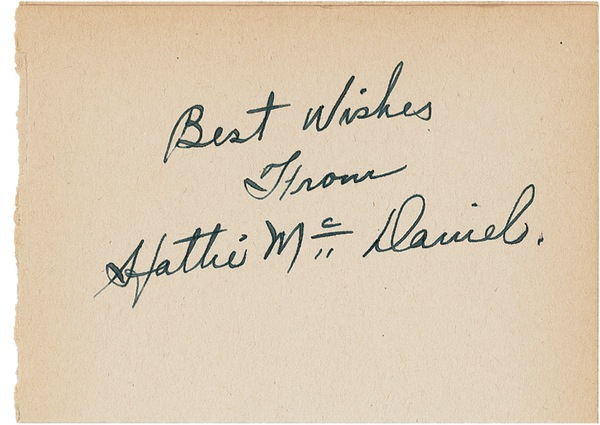 Best Wishes
From
Hattie Mc Daniel.